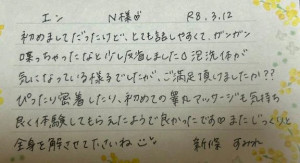 エン N様 R8.3.12
初めましてだったけど、とても話しやすくて、ガンガン
喋っちゃったなと少し反省しました 泡洗体が
気になっている様でしたが、ご満足頂けましたか??
ぴったり密着したり、初めての睾丸マッサージも気持ち
良く体験してもらえたようで良かったです またじっくりと
全身を解させて下さいね
新保 すみれ